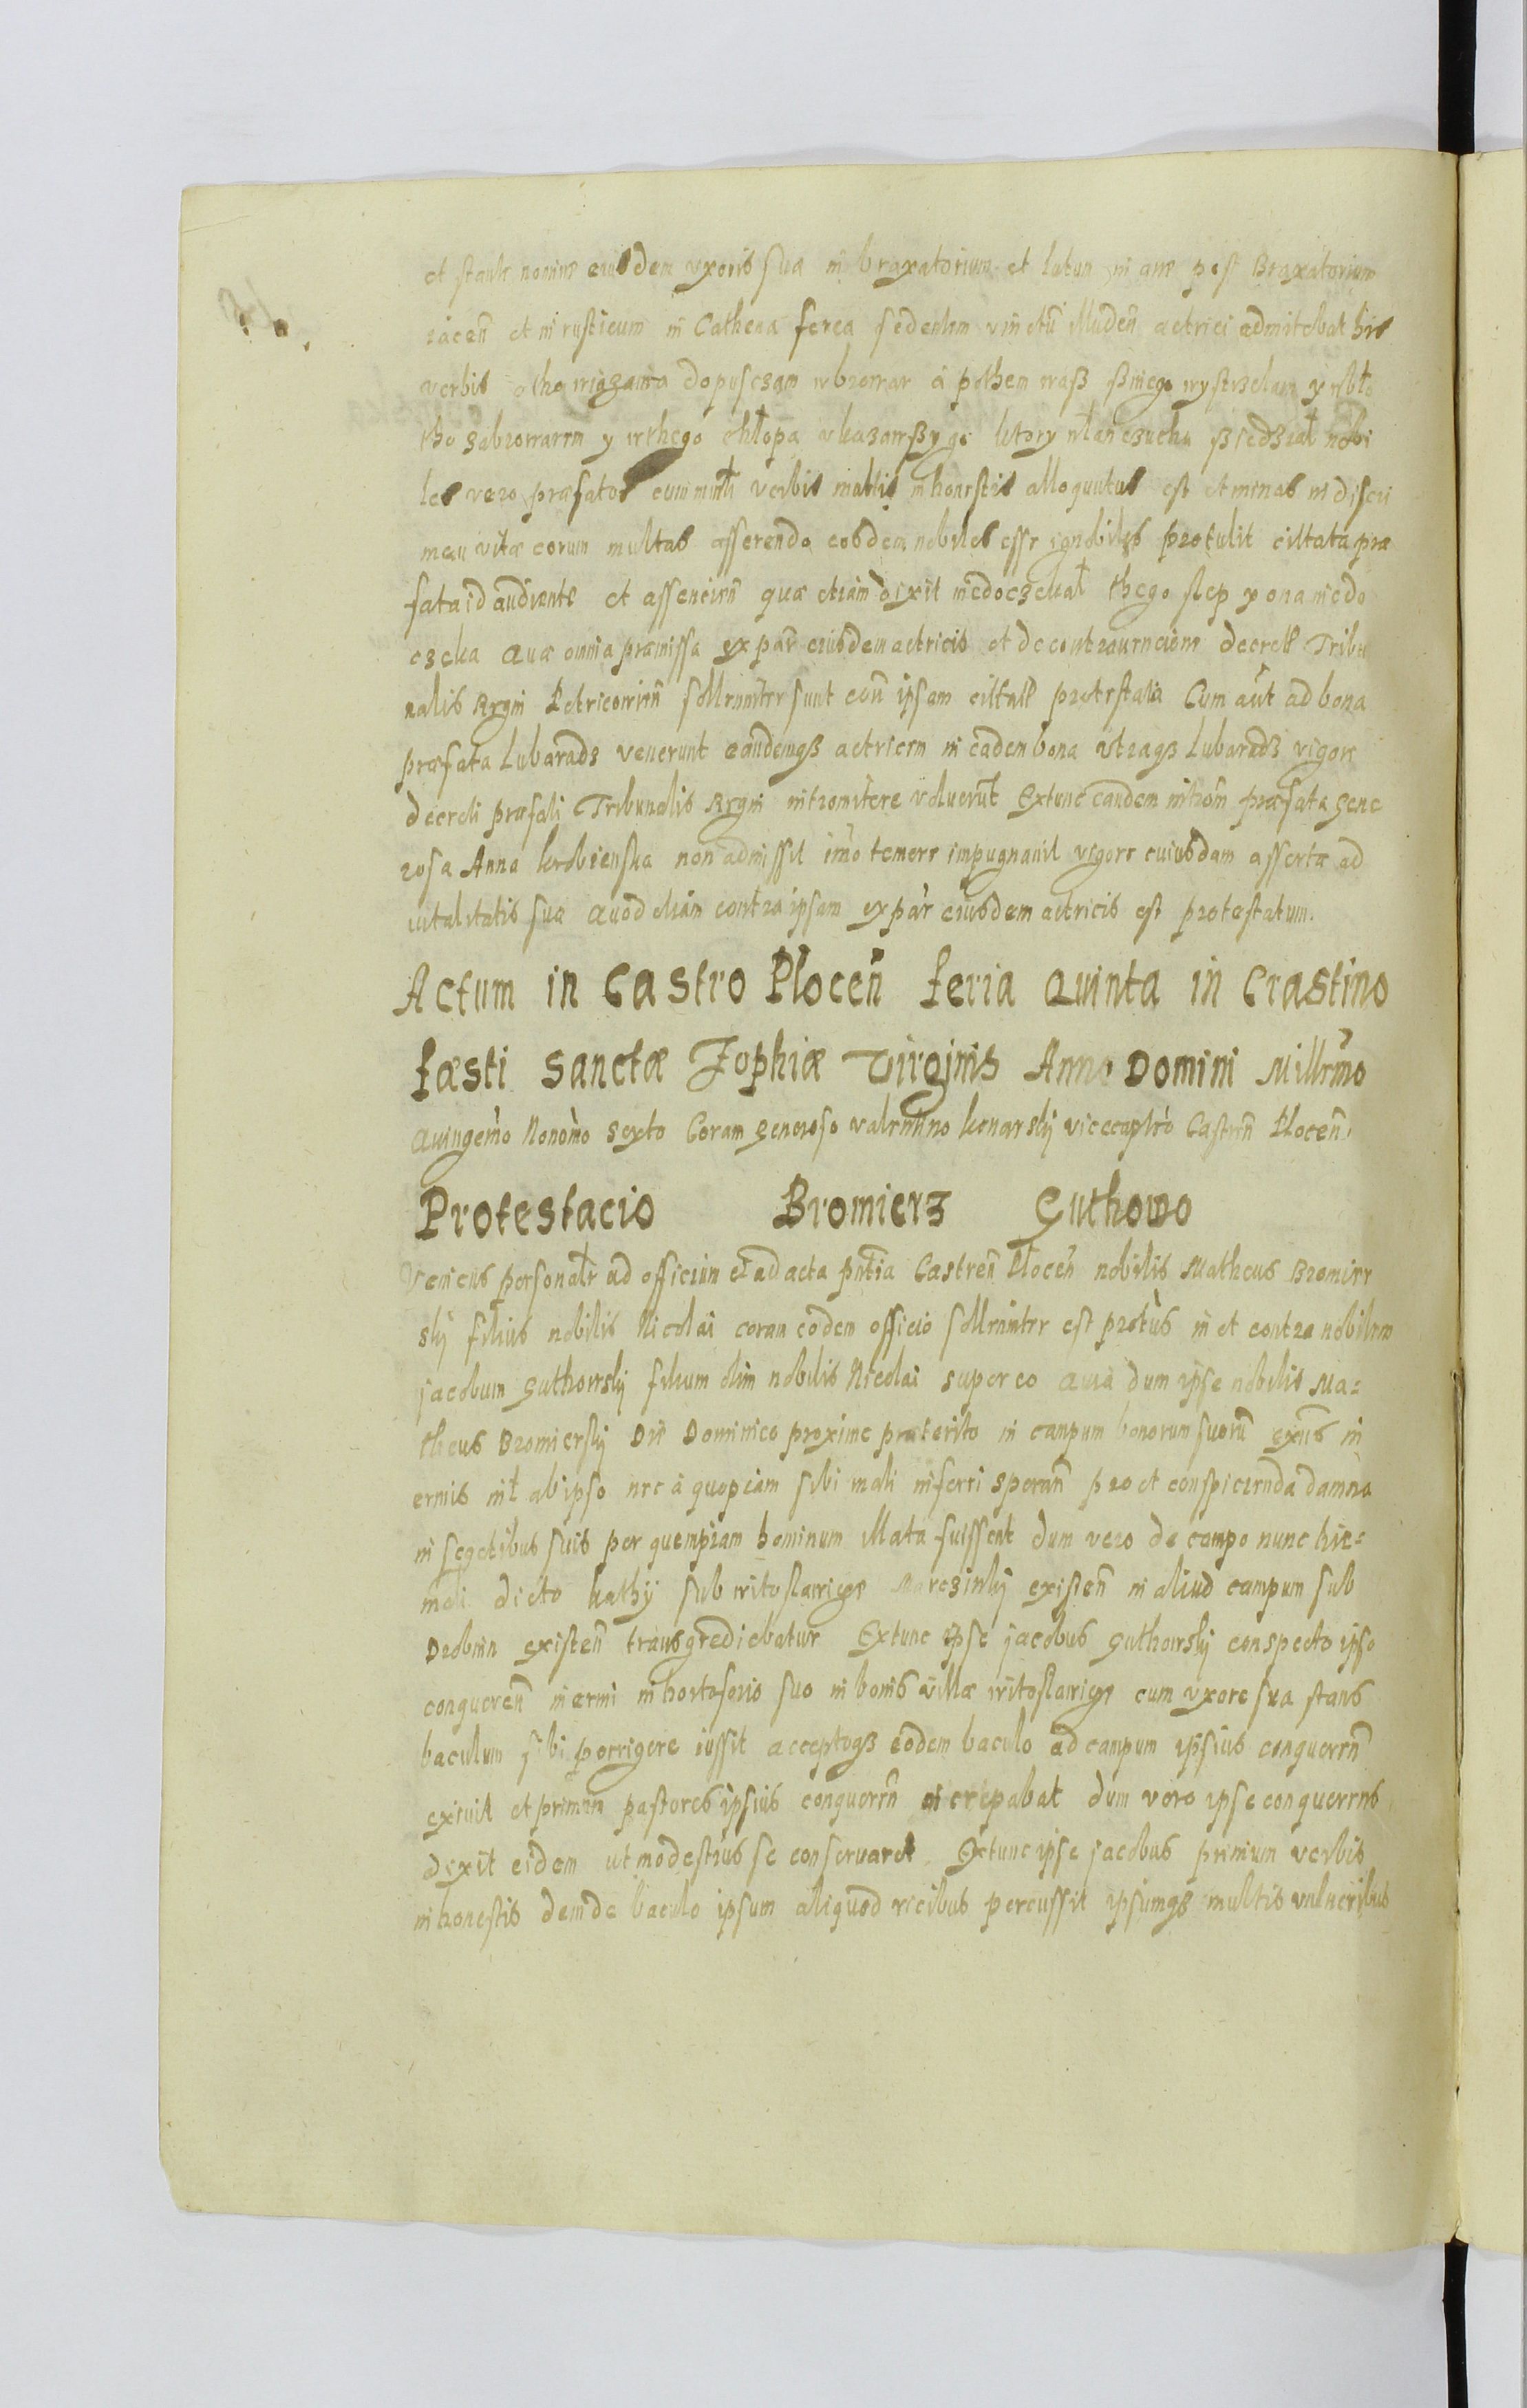 et stanis nomine eiusdem uxoris suæ in braxatorium et lutum in ante post Braxatorium
iacen̄ et in rusticum in Cathena ferea sedentem vinctū illuden̄ actrici admitebat his
verbis
tho zabiorrarrm y wthego chłopa vkazawßy go ktory włanczuchu ßiedział nobi
les vero præfatos verbis malis inhonestis alloquutus est et minas in discri
men vitæ eorum multas asserendo eosdem nobiles esse ignobiles protulit citata præ
fata id audiente et assencien̄ quæ etiam dixit niedoczekał thego step y ona niedo
czeka Quæ omnia præmissa ex par̄ eiusdem actricis et de contravencione decreti Tribu
nalis Regni Petricovien̄ sollenniter sunt con̄ ipsam citatā protestata Cum aūt ad bona
præfata Lubaradz venerunt eandemqȝ actricem in eadem bona utraqȝ Lubaradz vigore
decreti præfati Tribunalis Regni intromitere voluerūt Extunc eandem intrōm præfata gene
rosa Anna non admissit imo temere impugnavit vigore cuiusdam assertæ ad
vitalitatis suæ Quod etiam contra ipsam ex par̄ eiusdem actricis est protestatum.
Actum in Castro Plocen̄ feria Quinta in Crastino
fæsti Sanctæ Zophiæ Virginis Anno Domini Millemo
Quingemo Nonomo Sexto Coram Generoso Valentino Konarskÿ vicecaptō Castren̄ Plocen̄
Protestacio Bromierz Guthowo
Veniens personalr ad officium et ad acta pn̄tia Castren̄ Plocen̄ nobilis Matheus Bromier
skÿ filius nobilis Nicolai coram eodem officio sollenniter est protus in et contra nobilem
jacobum Guthowskÿ filium olim nobilis Nicolai super eo Quia dum ipse nobilis Ma=
theus Bromierskÿ Die Dominico proxime præterito in campum bonorum suorū exiēs in
ermis nil ab ipso nec à quopiam sibi mali inferri speran̄ pro et conspicienda damna
in segetibus suis per quempiam hominum illata fuissent dum vero de campo nunc hie=
mali dicto kathÿ sub witoslawice Marczinkÿ existen̄ in aliud campum sub
Drobnin existen̄ transgrediebatur Extunc ipse jacobus Guthowskÿ conspecto ipso
conqueren̄ inermi in hortoforio suo in bonis villæ witoslawice cum uxore sua stans
baculum sibi porrigere iussit acceptoqȝ eodem baculo ad campum ipsius conqueren̄
exivit et primum pastores ipsius conqueren̄ increpabat dum vero ipse conquerens
dixit eidem ut modestius se conservaret Extunc ipse jacobus primum verbis
inhonestis deinde baculo ipsum aliquod vicibus percussit ipsumqȝ multis vulneribus